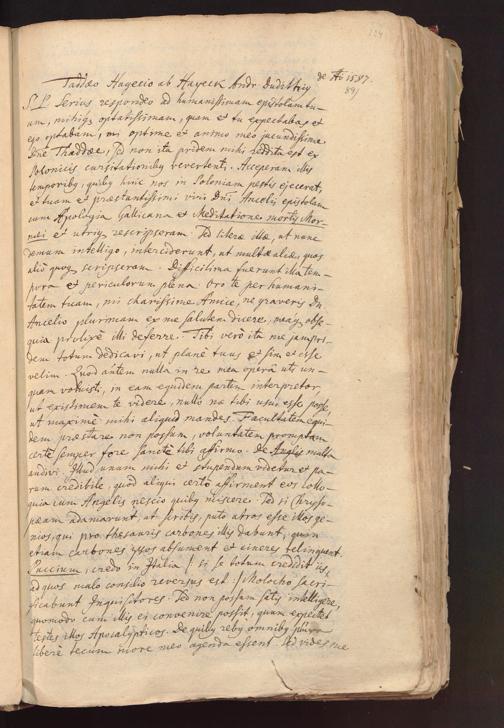 de Aō 1587.
Taddæo Hagecio ab Hayeck Andr Dudithiꝰ
S. P. Serius respondeo ad humanissimam epistolam tu-
am, mihiqꝫ optatissimam, quam et tu expectabas et
ego optabam, mi optime et animo meo jucundissime
Dne Thaddæe, sed non ita pridem mihi reddita est ex
Polonicis cursitationibꝫ revertenti. Acceperam illis
temporibꝫ, quibꝫ hinc nos in Poloniam pestis ejecerat,
et tuam et præstantissimi viri Dni Ancelii epistolam
cum Apologia Gallicana et Meditatione mortis Mor-
næi et utriqꝫ rescripseram. Sed literæ illæ, ut nunc
demum intelligo, interciderunt, ut multæ aliæ, quas
aliò quoqꝫ scripseram. Difficilima fuerunt illa tem-
pora et periculorum plena. Oro te per humani-
tatem tuam, mi charissime Amice, ne graveris Dn
Ancelio plurimam ex me salutem dicere, meaqꝫ obse-
quia prolixè illi deferre. Tibi verò ita me jampri-
dem totum dedicavi, ut planè tuus et sim et esse
velim. Quod autem nulla in re mea operâ uti un-
quam voluisti, in eam equidem partem interpretor
ut existimem te videre, nullo me tibi usui esse posse,
ut maximè mihi aliquid mandes. Facultatem equi-
dem præstare non possum, voluntatem promptam
certè semper fore sanctè tibi affirmo. De Anglis multa
audivi. Illud unum mihi et stupendum videtur et pa-
rum credibile, quod aliqui certò affirment eos collo-
quia cum Angelis nescio quibꝫ miscere. Sed si Chryso-
pœam adamarunt, ut scribis, puto atros esse illos ge-
nios, qui pro thesauris carbones illis dabunt, quin
etiam carbones ipsos absument et cineres relinquent.
Puccium, credo in Italia (si se totum credidit iis,
ad quos malo consilio reversus est) Molocho sacri-
ficabunt Inquisitores. Sed non possum satis intelligere,
quomodo cum illis ei convenire possit, quum expectet
testes illos Apocalypticos. De quibꝫ rebꝫ omnibꝫ
liberè tecum more meo agenda essent. Sed vides me